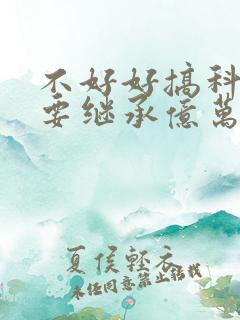 不好好搞科
要继承億萬
夏侯轻衣
未经同意禁止转载